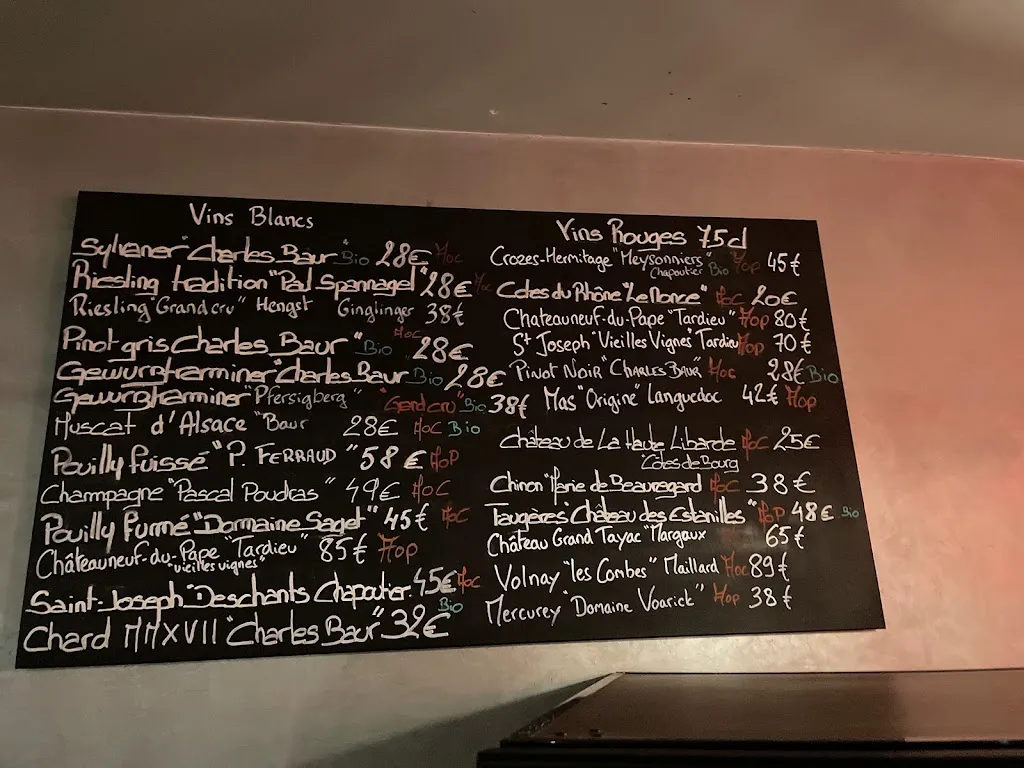 Vins Blancs
Sylvaner "Charles Baur" Bio 28€ Aoc
Riesling tradition "Paul Spannagel" 28€ Aoc
Riesling "Grand cru" Hengst Ginglinger 38€
Pinot gris Charles Baur" Bio Aoc 28€
Gewurztraminer "Charles Baur Bio 28€
Gewurztraminer "Pfersigberg" "Grand cru" Bio 38€
Muscat d'Alsace "Baur 28€ AOC Bio
Pouilly Fuissé "P. FERRAUD" 58€ AOP
Champagne "Pascal Poudras" 49€ AOC
Pouilly Fumé "Domaine Saget" 45€ AOC
Châteauneuf-du-Pape "Tardieu" 85€ Aop
"vieilles vignes"
Saint-Joseph "Deschants Chapoutier 45€ Aoc
Bio
Chard MMXVII "Charles Baur" 32€
Vins Rouges 75cl
Crozes-Hermitage "Meysonniers" Aop 45€
Chapoutier Bio
Cotes du Rhône "Le Ponce" AOC 20€
Chateauneuf-du-Pape "Tardieu" Aop 80€
St Joseph "Vieilles Vignes" Tardieu Aop 70€
Pinot Noir "Charles Baur" Aoc 28€ Bio
Mas "Origine" Languedoc 42€ Aop
Château de La Haute Libarde Aoc 25€
"Côtes de Bourg
Chinon "Marie de Beauregard Aoc 38€
Faugères "Château des Estanilles" AOP 48€ Bio
Château Grand Tayac "Margaux 65€
Volnay "les Combes" Maillard Aoc 89€
Mercurey "Domaine Voarick" Aop 38€